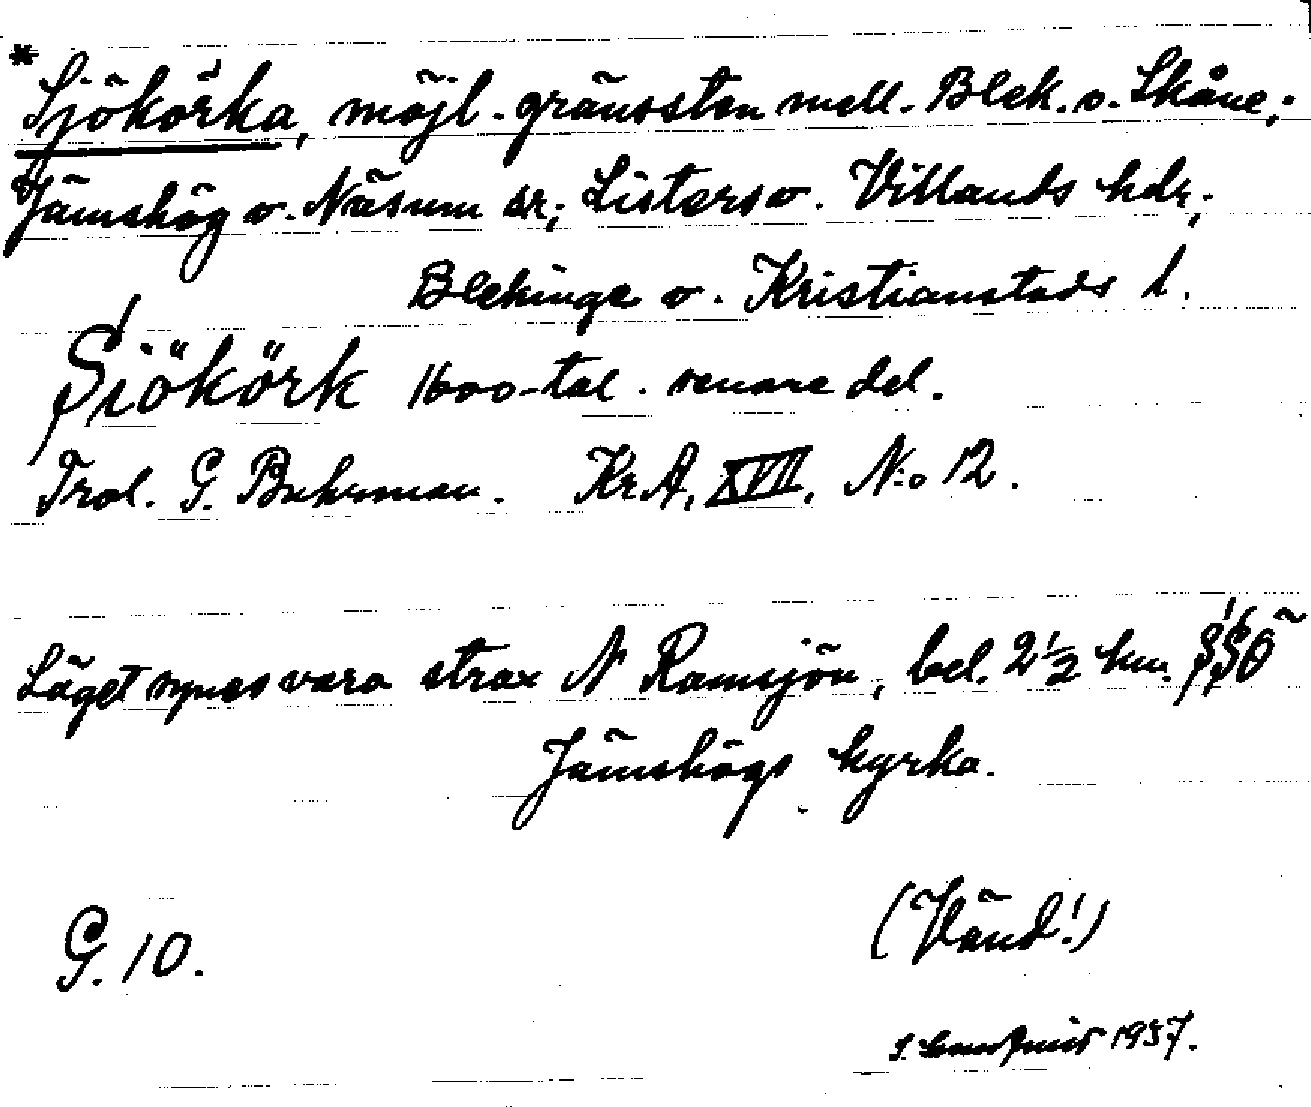 *Sjökörka, möjl. gränssten mell. Blek. o. Skåne;
Jämshög o. Näsum sr; Listers o. Villands hdr;
Blekinge o. Kristianstads l.
Siökörk 1600-tal. senare del.
Trol. G. Buhrman. Kr.A, XVII, N:o 12.
Läget synes vara strax N Ramsjön, bel. 2 1/2 km. SSÖ
Jämshögs kyrka.
(Vänd!)
G. 10.
1957.